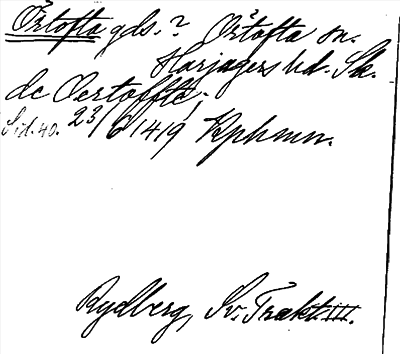 Örtofta gds.? Örtofta sn.
Harjagers hd. Sk.
de Oertoffte,
Sid. 40. 23/6 1419 Kphmn.
Rydberg, Sv. Trakt. III.